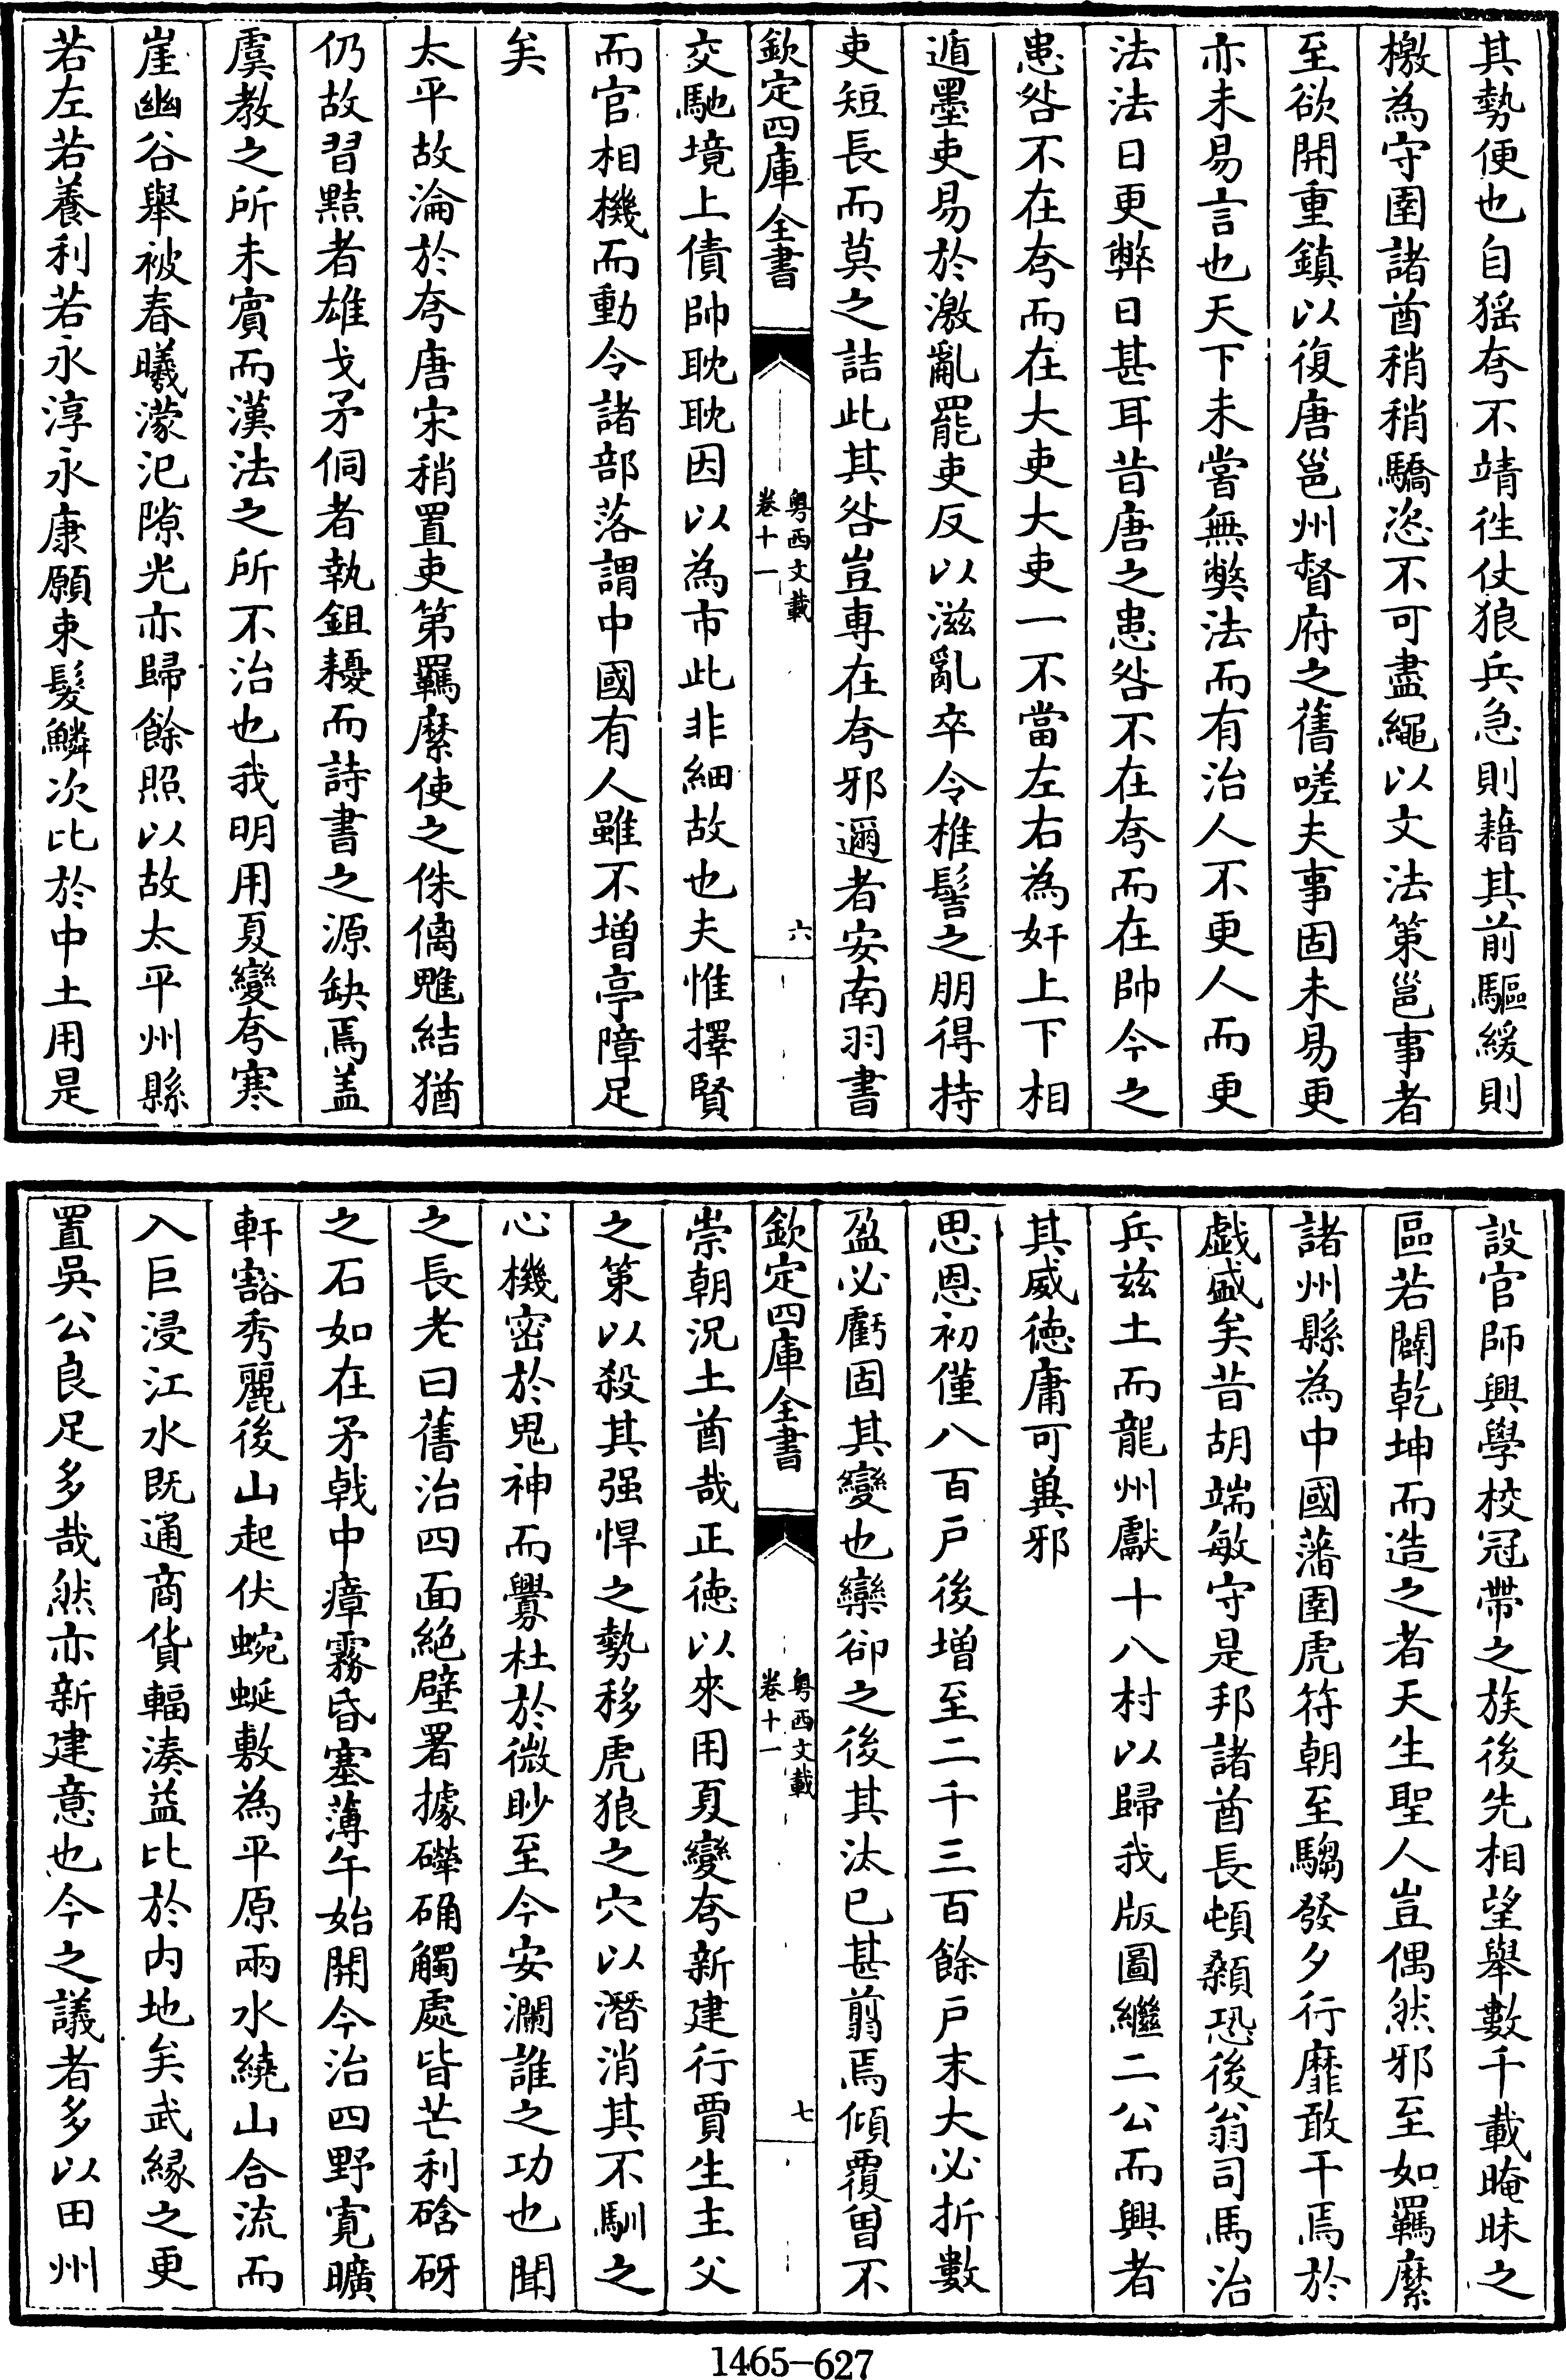 其勢便也自猺夸不靖徃仗狼兵急則藉其前驅緩則
檄為守圉諸酋稍稍驕恣不可盡繩以文法第邕事者
至欲開重鎮以復唐邕州督府之舊嗟夫事固未易更
亦未易言也天下未嘗無獘法而有治人不更人而更
法法日更弊日甚耳昔唐之患咎不在夸而在帥今之
患咎不在夸而在大吏大吏一不當左右為奸上下相
遁墨吏易於激亂罷吏反以滋亂卒令椎髻之朋得持
吏短長而莫之詰此其咎豈専在夸邪邇者安南羽書
欽定四庫全書
粤西文載
卷十一
六
交馳境上債帥耽耽因以為市此非細故也夫惟擇賢
而官相機而動令諸部落謂中國有人雖不増亭障足
矣
太平故淪於夸唐宋稍置吏第羈縻使之侏㒧魋結猶
仍故習黠者雄戈矛侗者執鉏耰而詩書之源缺焉盖
虞教之所未賔而漢法之所不治也我明用夏變夸寒
崖幽谷舉被春曦濛汜隙光亦歸餘照以故太平州縣
若左若養利若永淳永康願束髮鱗次比於中土用是
設官師興學校冠帶之族後先相望舉數千載晻昧之
區若闢乾坤而造之者天生聖人豈偶然邪至如羈縻
諸州縣為中國藩圉虎符朝至騶發夕行靡敢干焉於
戯盛矣昔胡端敏守是邦諸酋長頓顙恐後翁司馬治
兵兹土而龍州獻十八村以歸我版圖繼二公而興者
其威徳庸可兾邪
思恩初僅八百戶後増至二千三百餘戶末大必折數
盈必虧固其變也欒卻之後其汰已甚翦焉傾覆曾不
欽定四庫全書
粤西文載
卷十一
七
崇朝況土酋哉正徳以來用夏變夸新建行賈生主父
之策以殺其强悍之勢移虎狼之穴以潛消其不馴之
心機密於鬼神而釁杜於微眇至今安瀾誰之功也聞
之長老曰舊治四面絶壁署據礫确觸處皆芒利硆砑
之石如在矛戟中瘴霧昏塞薄午始開今治四野寛曠
軒豁秀麗後山起伏蜿蜒敷為平原兩水繞山合流而
入巨浸江水既通商貨輻湊益比於内地矣武縁之更
置吳公良足多哉然亦新建意也今之議者多以田州
1465—627